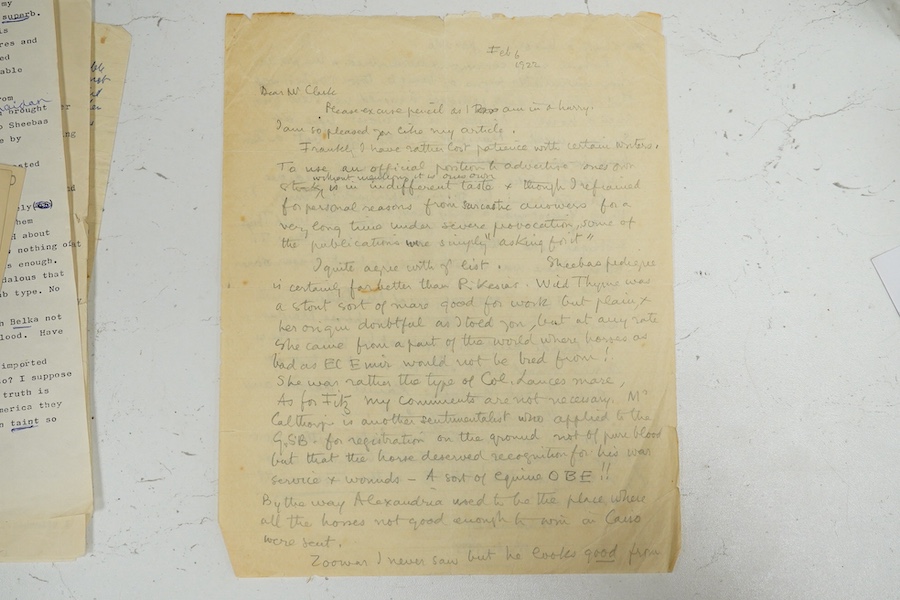 my
superb.
is
res and
ed
able
om
brought
o Sheebas
e by
ated
d
ly
hem
d about
, nothing of
s enough.
dalous that
b type. No
n Helka not
lood. Have
imported
o? I suppose
truth is
merica they
n taint so
Feb 6
1922
Dear Mr Clark
Please excuse pencil as I am in a hurry.
I am so pleased you like my article.
Frankly I have rather lost patience with certain writers.
To use an official position to advertise ones own
without mentioning it is ones own
stock is in indifferent taste & though I refrained
for personal reasons from sarcastic answers for a
very long time under severe provocation, some of
the publications were simply "asking for it"
I quite agree with yr list. Sheebas pedigree
is certainly far better than P. Kesias. Wild Thyme was
a stout sort of mare good for work but plain &
her origin doubtful as I told you, but at any rate
she came from a part of the world where horses as
bad as El Emir would not be bred from!
She was rather the type of Col. Lances mare,
As for Fitz my comments are not necessary. Mr
Calthorp is another sentimentalist who applied to the
G.S.B. for registration on the ground not of pure blood
but that the horse deserved recognition for his war
service & wounds – A sort of equine OBE!!
By the way Alexandria used to be the place where
all the horses not good enough to win in Cairo
were sent.
Zoowar I never saw but he looks good from